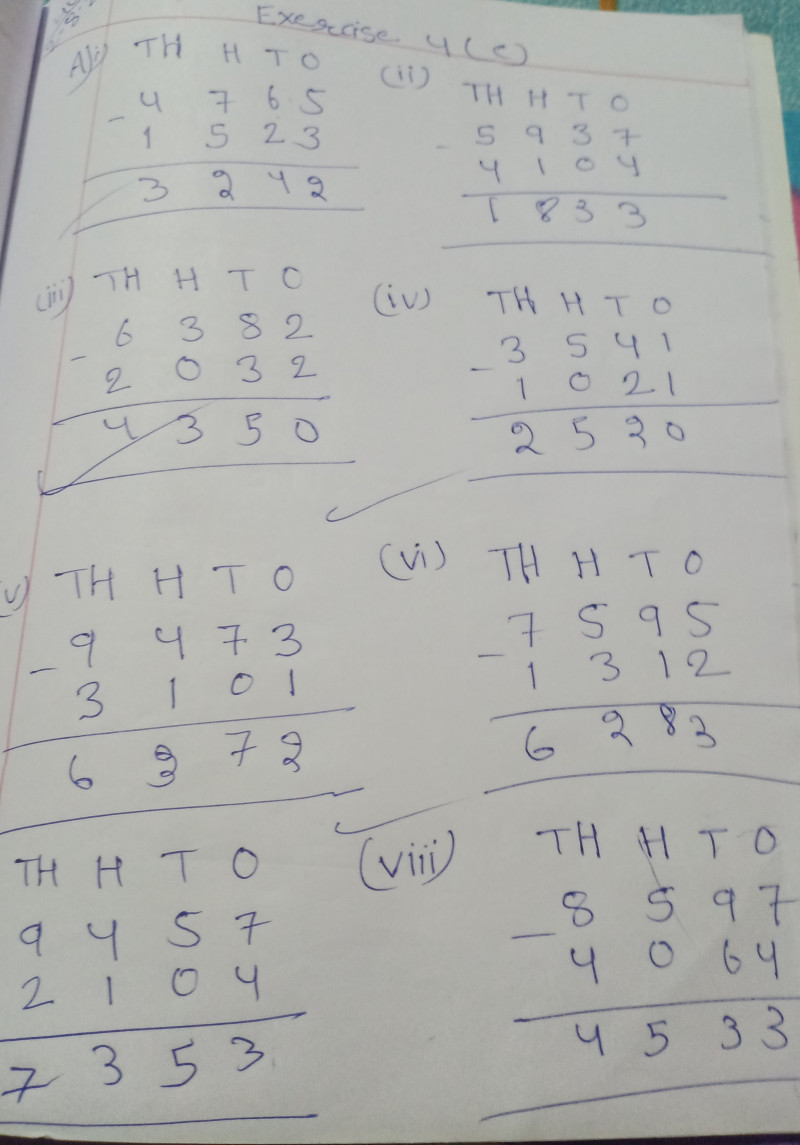 Exercise 4(c)
A)i) TH H T O
- 4 7 6 5
1 5 2 3
3 2 4 2
(ii) TH H T O
- 5 9 3 7
4 1 0 4
1 8 3 3
(iii) TH H T O
- 6 3 8 2
2 0 3 2
4 3 5 0
(iv) TH H T O
- 3 5 4 1
1 0 2 1
2 5 2 0
v) TH H T O
- 9 4 7 3
3 1 0 1
6 3 7 2
(vi) TH H T O
- 7 5 9 5
1 3 1 2
6 2 8 3
TH H T O
9 4 5 7
2 1 0 4
7 3 5 3
(viii) TH H T O
- 8 5 9 7
4 0 6 4
4 5 3 3